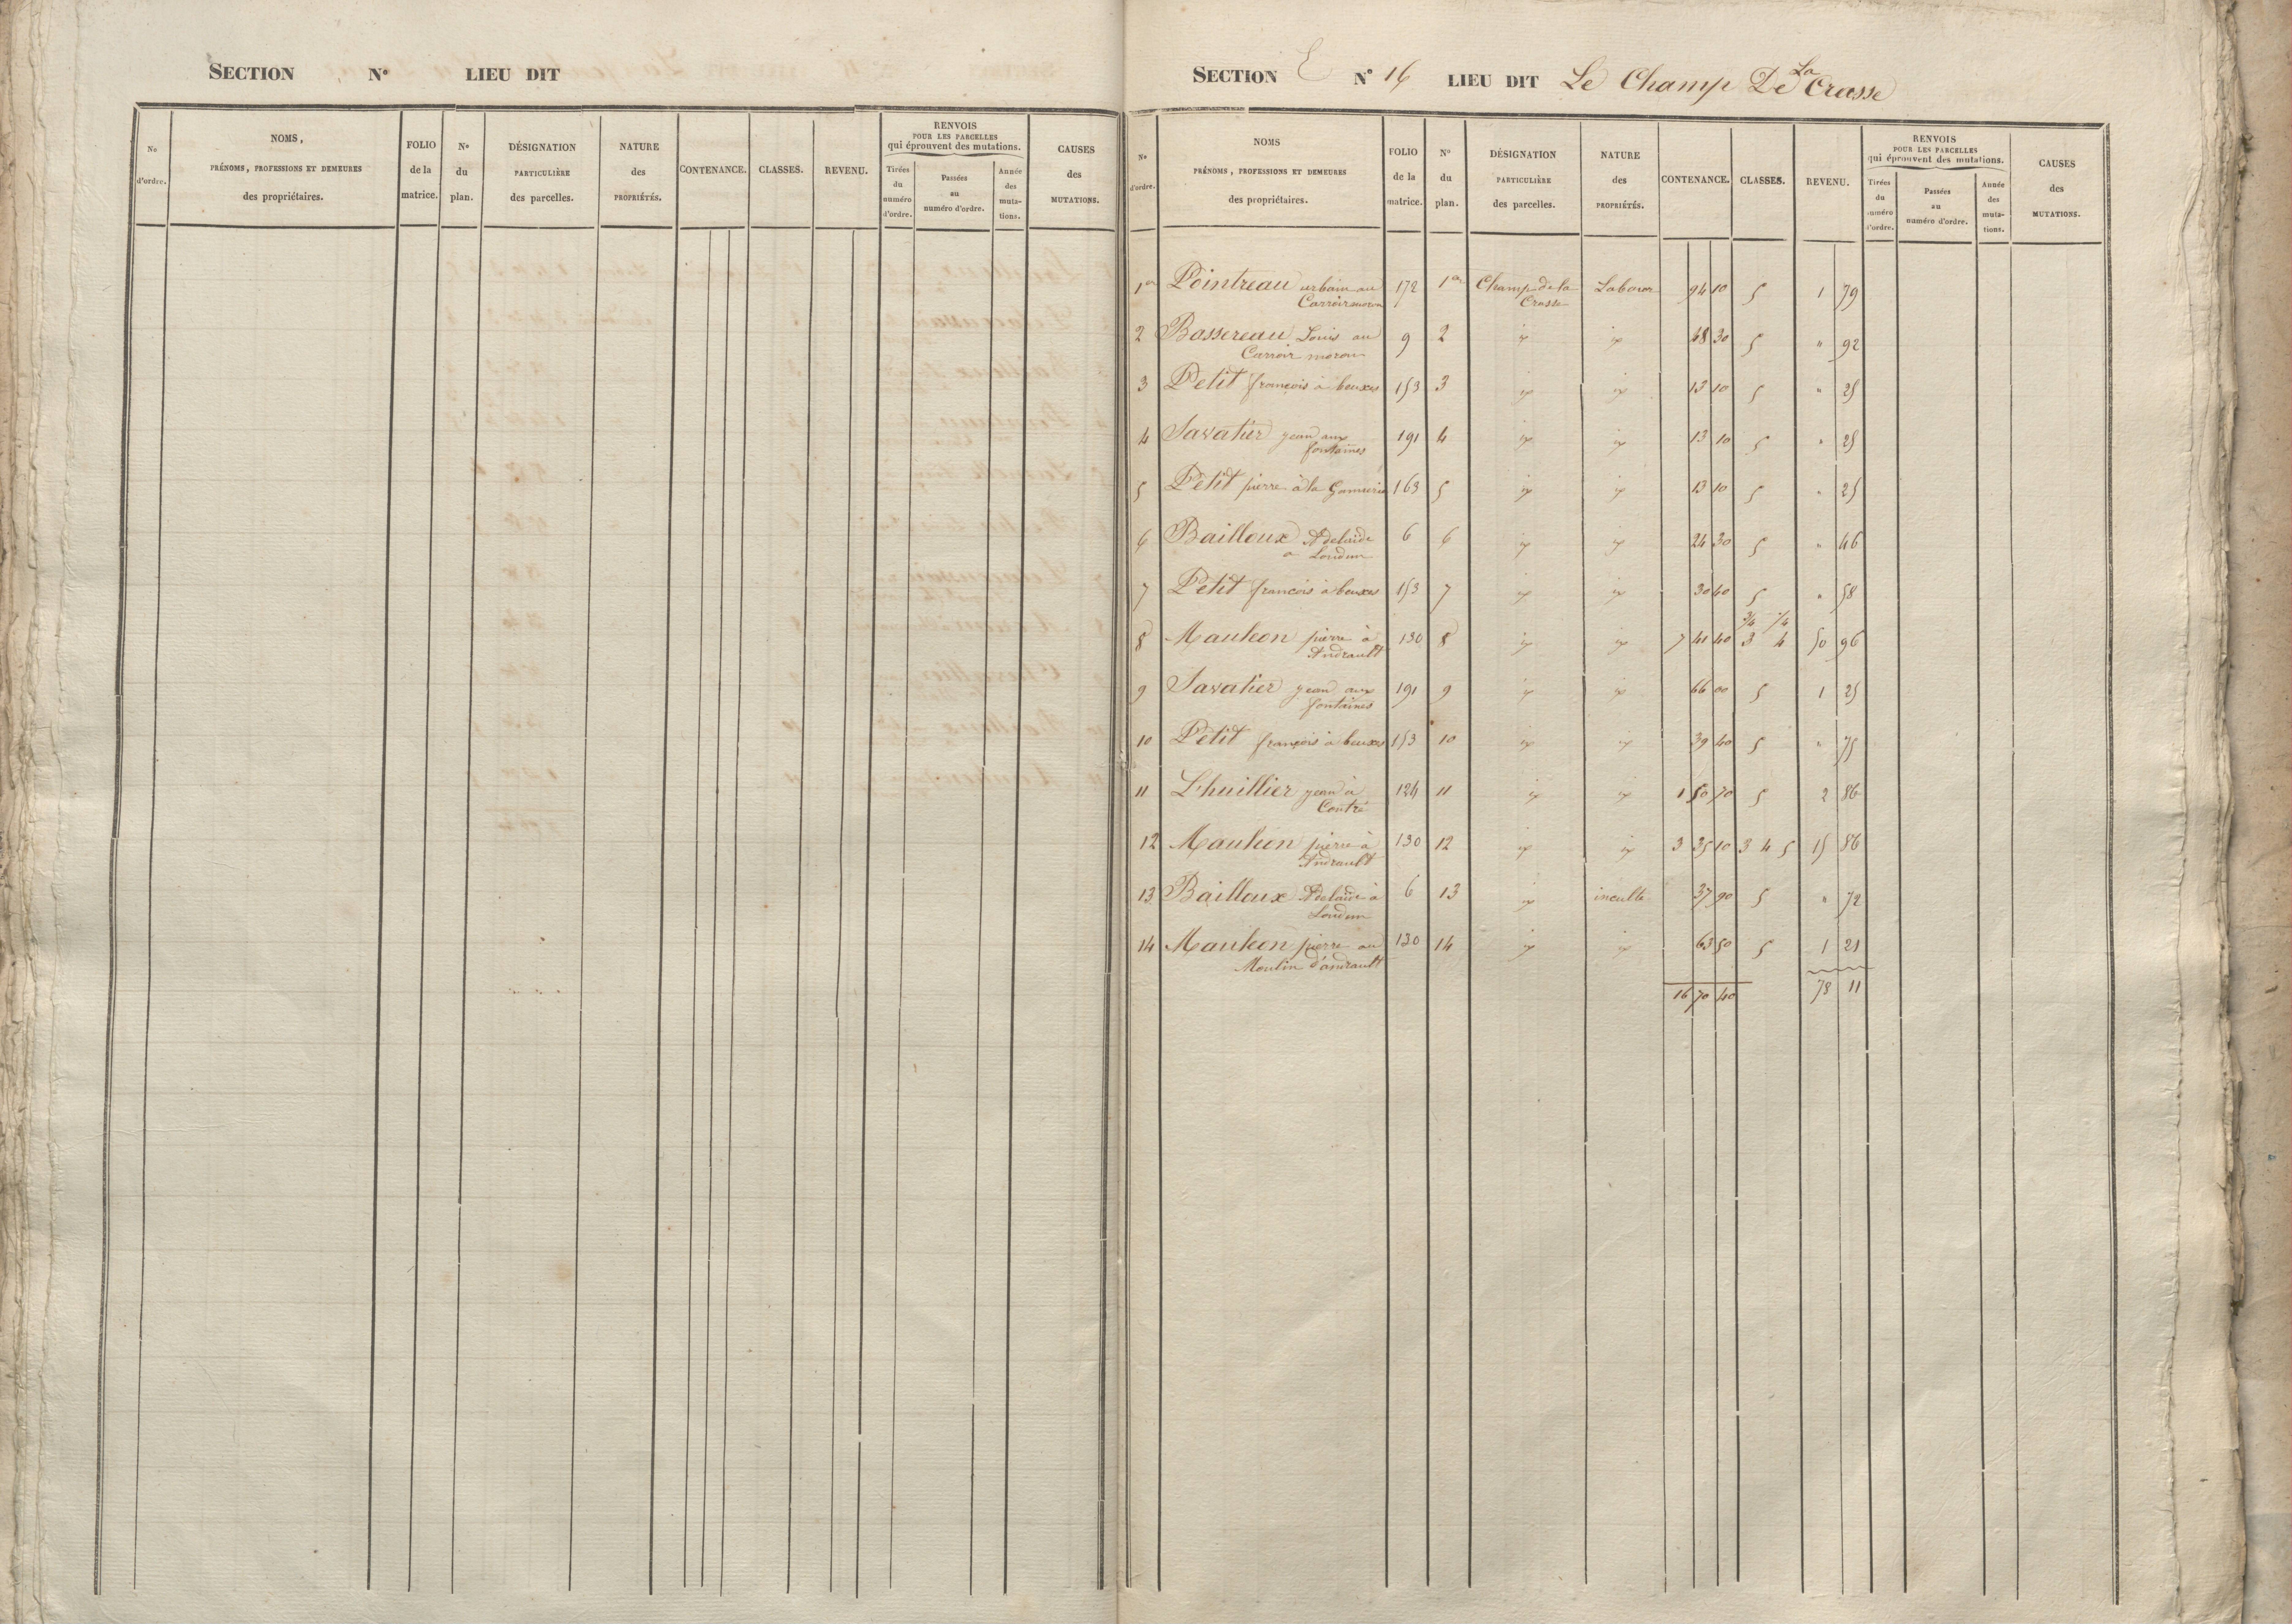 SECTION N° LIEU DIT
No d'ordre.
NOMS, PRÉNOMS, PROFESSIONS ET DEMEURES des propriétaires.
FOLIO de la matrice.
No du plan.
DÉSIGNATION PARTICULIÈRE des parcelles.
NATURE des PROPRIÉTÉS.
CONTENANCE.
CLASSES.
REVENU.
RENVOIS POUR LES PARCELLES qui éprouvent des mutations.
Tirées du numéro d'ordre.
Passées au numéro d'ordre.
Année des mutations.
CAUSES des MUTATIONS.
SECTION E N° 16 LIEU DIT Le Champ De La Crasse
No d'ordre.
NOMS PRÉNOMS, PROFESSIONS ET DEMEURES des propriétaires.
FOLIO de la matrice.
N° du plan.
DÉSIGNATION PARTICULIÈRE des parcelles.
NATURE des PROPRIÉTÉS.
CONTENANCE.
CLASSES.
REVENU.
RENVOIS POUR LES PARCELLES qui éprouvent des mutations.
Tirées du numéro d'ordre.
Passées au numéro d'ordre.
Année des mutations.
CAUSES des MUTATIONS.
1er Pointreau urbain au 172 1er Champ de la Labour 94 10 5 1 79
Carroir moron Crasse
2 Bossereau Louis au 9 2 id id 48 30 5 " 92
Carroir moron
3 Petit françois à beuxes 153 3 id id 13 10 5 " 25
4 Savatier jean aux 191 4 id id 13 10 5 " 25
fontaines
5 Petit pierre à la 163 5 id id 13 10 5 " 25
6 Bailloux Adelaide 6 6 id id 24 30 5 " 46
a Loudun
7 Petit francois à beuxes 153 7 id id 30 40 5 " 58
3/4 1/4
8 Mauleon pierre à 130 8 id id 7 41 40 3 4 50 96
Andrault
9 Savatier jean aux 191 9 id id 66 00 5 1 25
fontaines
10 Petit françois à beuxes 153 10 id id 39 40 5 " 75
11 Lhuillier jean à 124 11 id id 1 50 70 5 2 86
Contré
12 Mauleon pierre à 130 12 id id 3 35 10 3 4 5 15 86
Andrault
13 Bailloux Adelaide à 6 13 id inculte 37 90 5 " 72
Loudun
14 Mauleon pierre au 130 14 id id 63 50 5 1 21
Moulin d'andrault
16 70 40 78 11